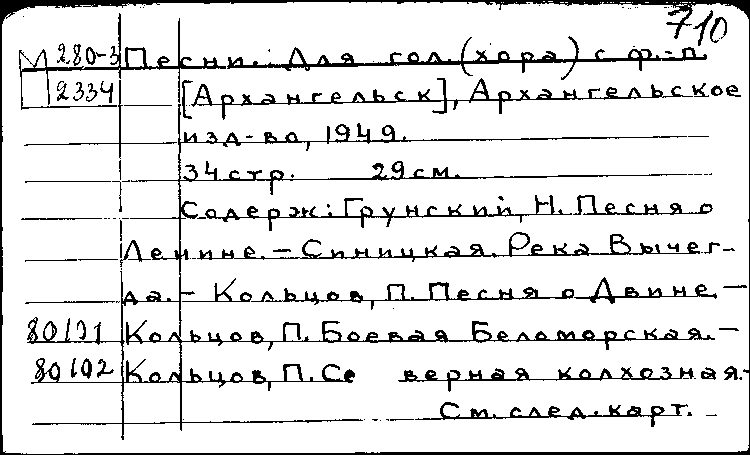 710
М 280-3 Песни. Для гол. (хора) с ф.-п.
2334 [Архангельск], Архангельское
изд-во, 1949.
34 стр. 29 см.
Содерж: Грунский, Н. Песня о
Ленине. – Синицкая. Река Вычег-
да. – Кольцов, П. Песня о Двине. –
80101 Кольцов, П. Боевая Беломорская. –
80102 Кольцов, П. Се верная колхозная. –
См. след. карт.